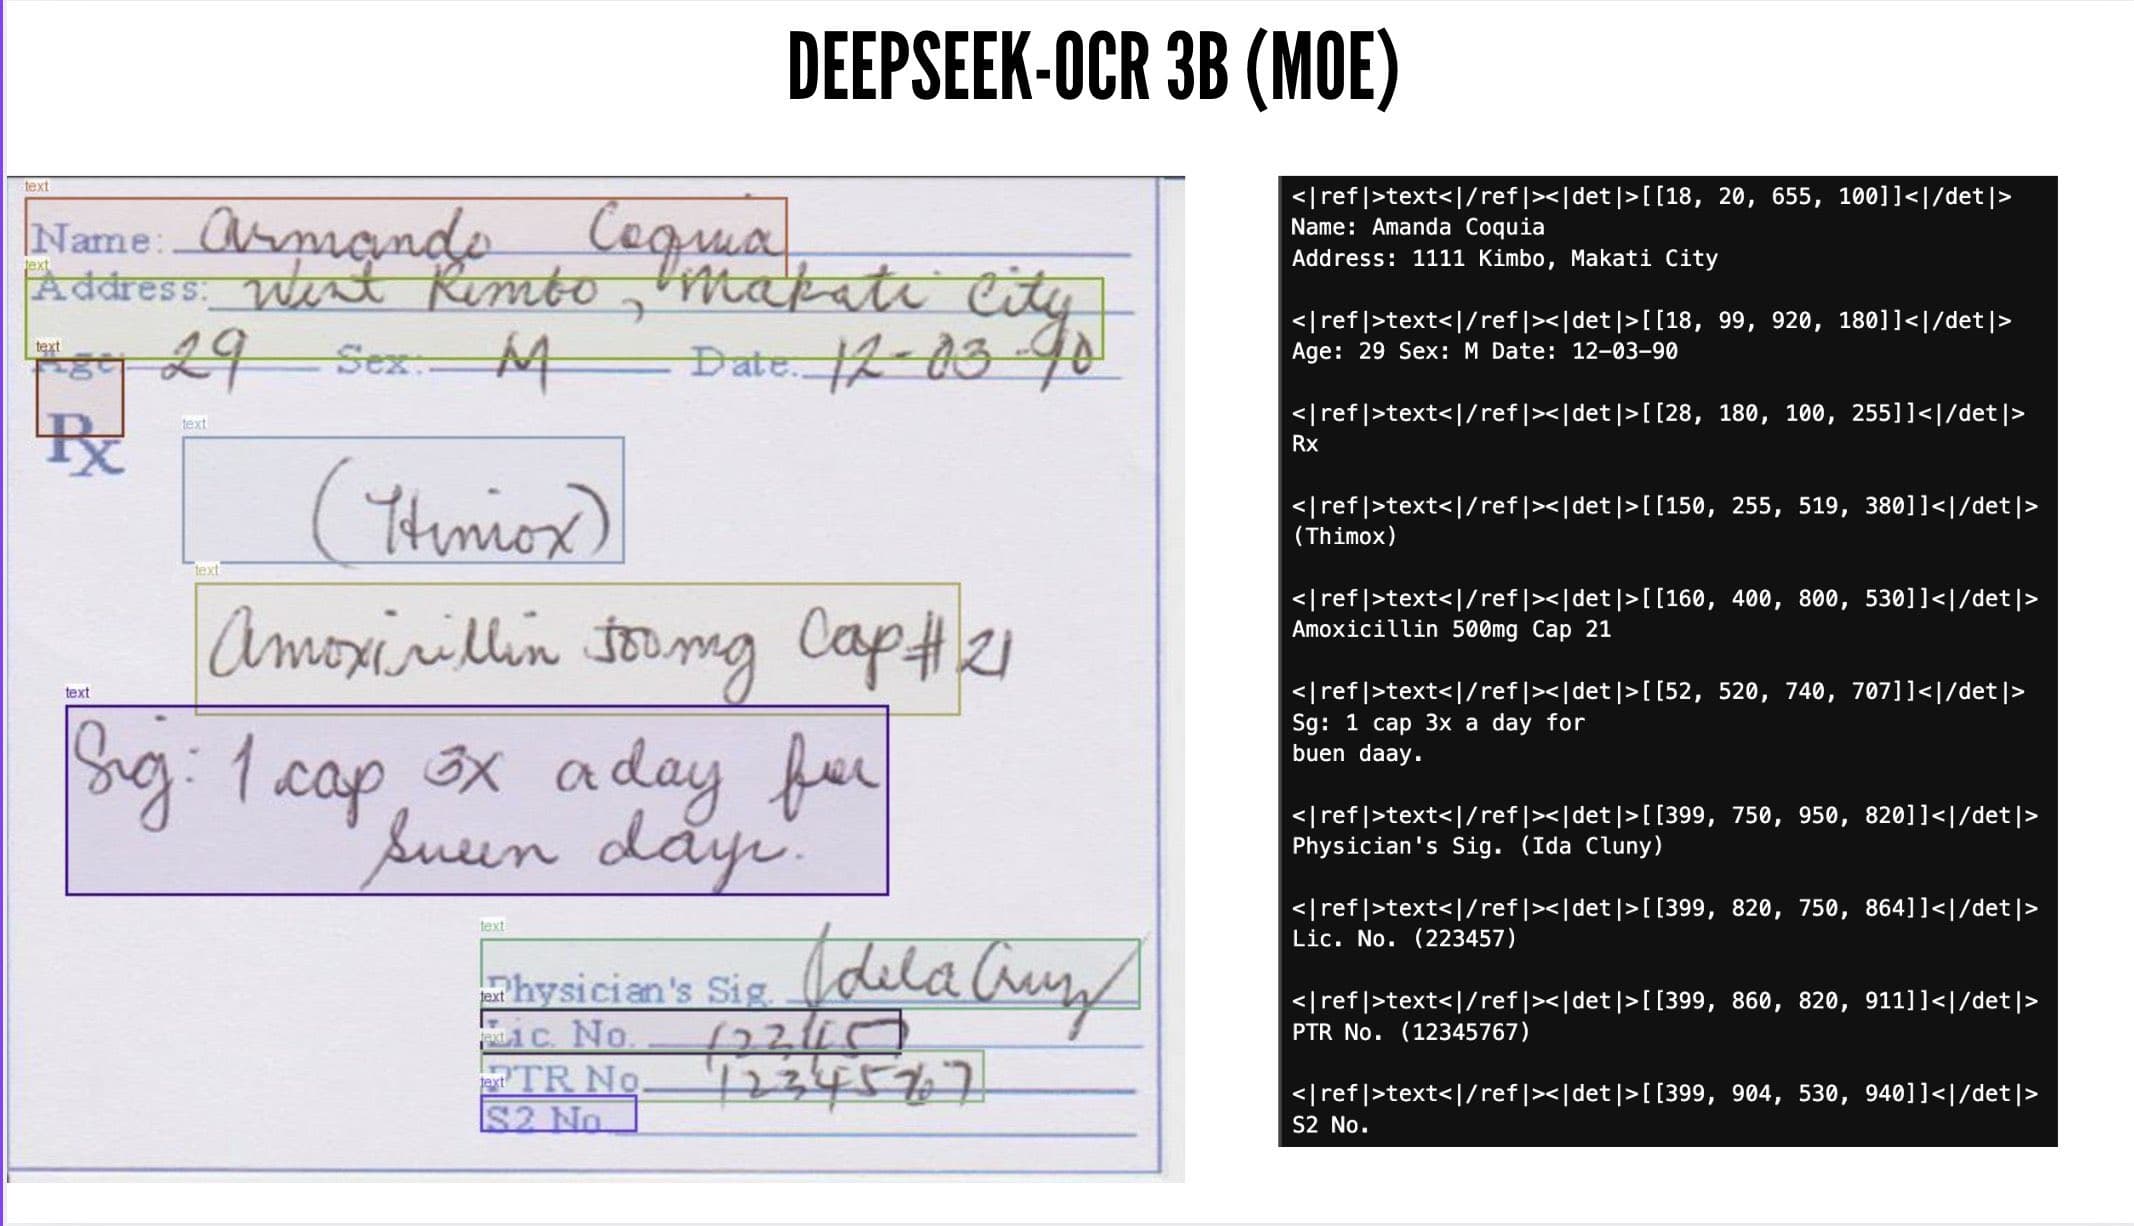 DEEPSEEK-OCR 3B (MOE)
text
Name: Armando Coquia
text
Address: West Rembo, Makati City
text
Age: 29 Sex: M Date. 12-03-90
Rx
text
(Himox)
text
Amoxicillin 500mg Cap #21
text
Sig: 1 cap 3x a day for
seven days.
text
Physician's Sig. Jdela Cruz
text
Lic. No. 12345
text
PTR No. 1234567
text
S2 No.
<|ref|>text<|/ref|><|det|>[[18, 20, 655, 100]]<|/det|>
Name: Amanda Coquia
Address: 1111 Kimbo, Makati City
<|ref|>text<|/ref|><|det|>[[18, 99, 920, 180]]<|/det|>
Age: 29 Sex: M Date: 12-03-90
<|ref|>text<|/ref|><|det|>[[28, 180, 100, 255]]<|/det|>
Rx
<|ref|>text<|/ref|><|det|>[[150, 255, 519, 380]]<|/det|>
(Thimox)
<|ref|>text<|/ref|><|det|>[[160, 400, 800, 530]]<|/det|>
Amoxicillin 500mg Cap 21
<|ref|>text<|/ref|><|det|>[[52, 520, 740, 707]]<|/det|>
Sg: 1 cap 3x a day for
buen daay.
<|ref|>text<|/ref|><|det|>[[399, 750, 950, 820]]<|/det|>
Physician's Sig. (Ida Cluny)
<|ref|>text<|/ref|><|det|>[[399, 820, 750, 864]]<|/det|>
Lic. No. (223457)
<|ref|>text<|/ref|><|det|>[[399, 860, 820, 911]]<|/det|>
PTR No. (12345767)
<|ref|>text<|/ref|><|det|>[[399, 904, 530, 940]]<|/det|>
S2 No.